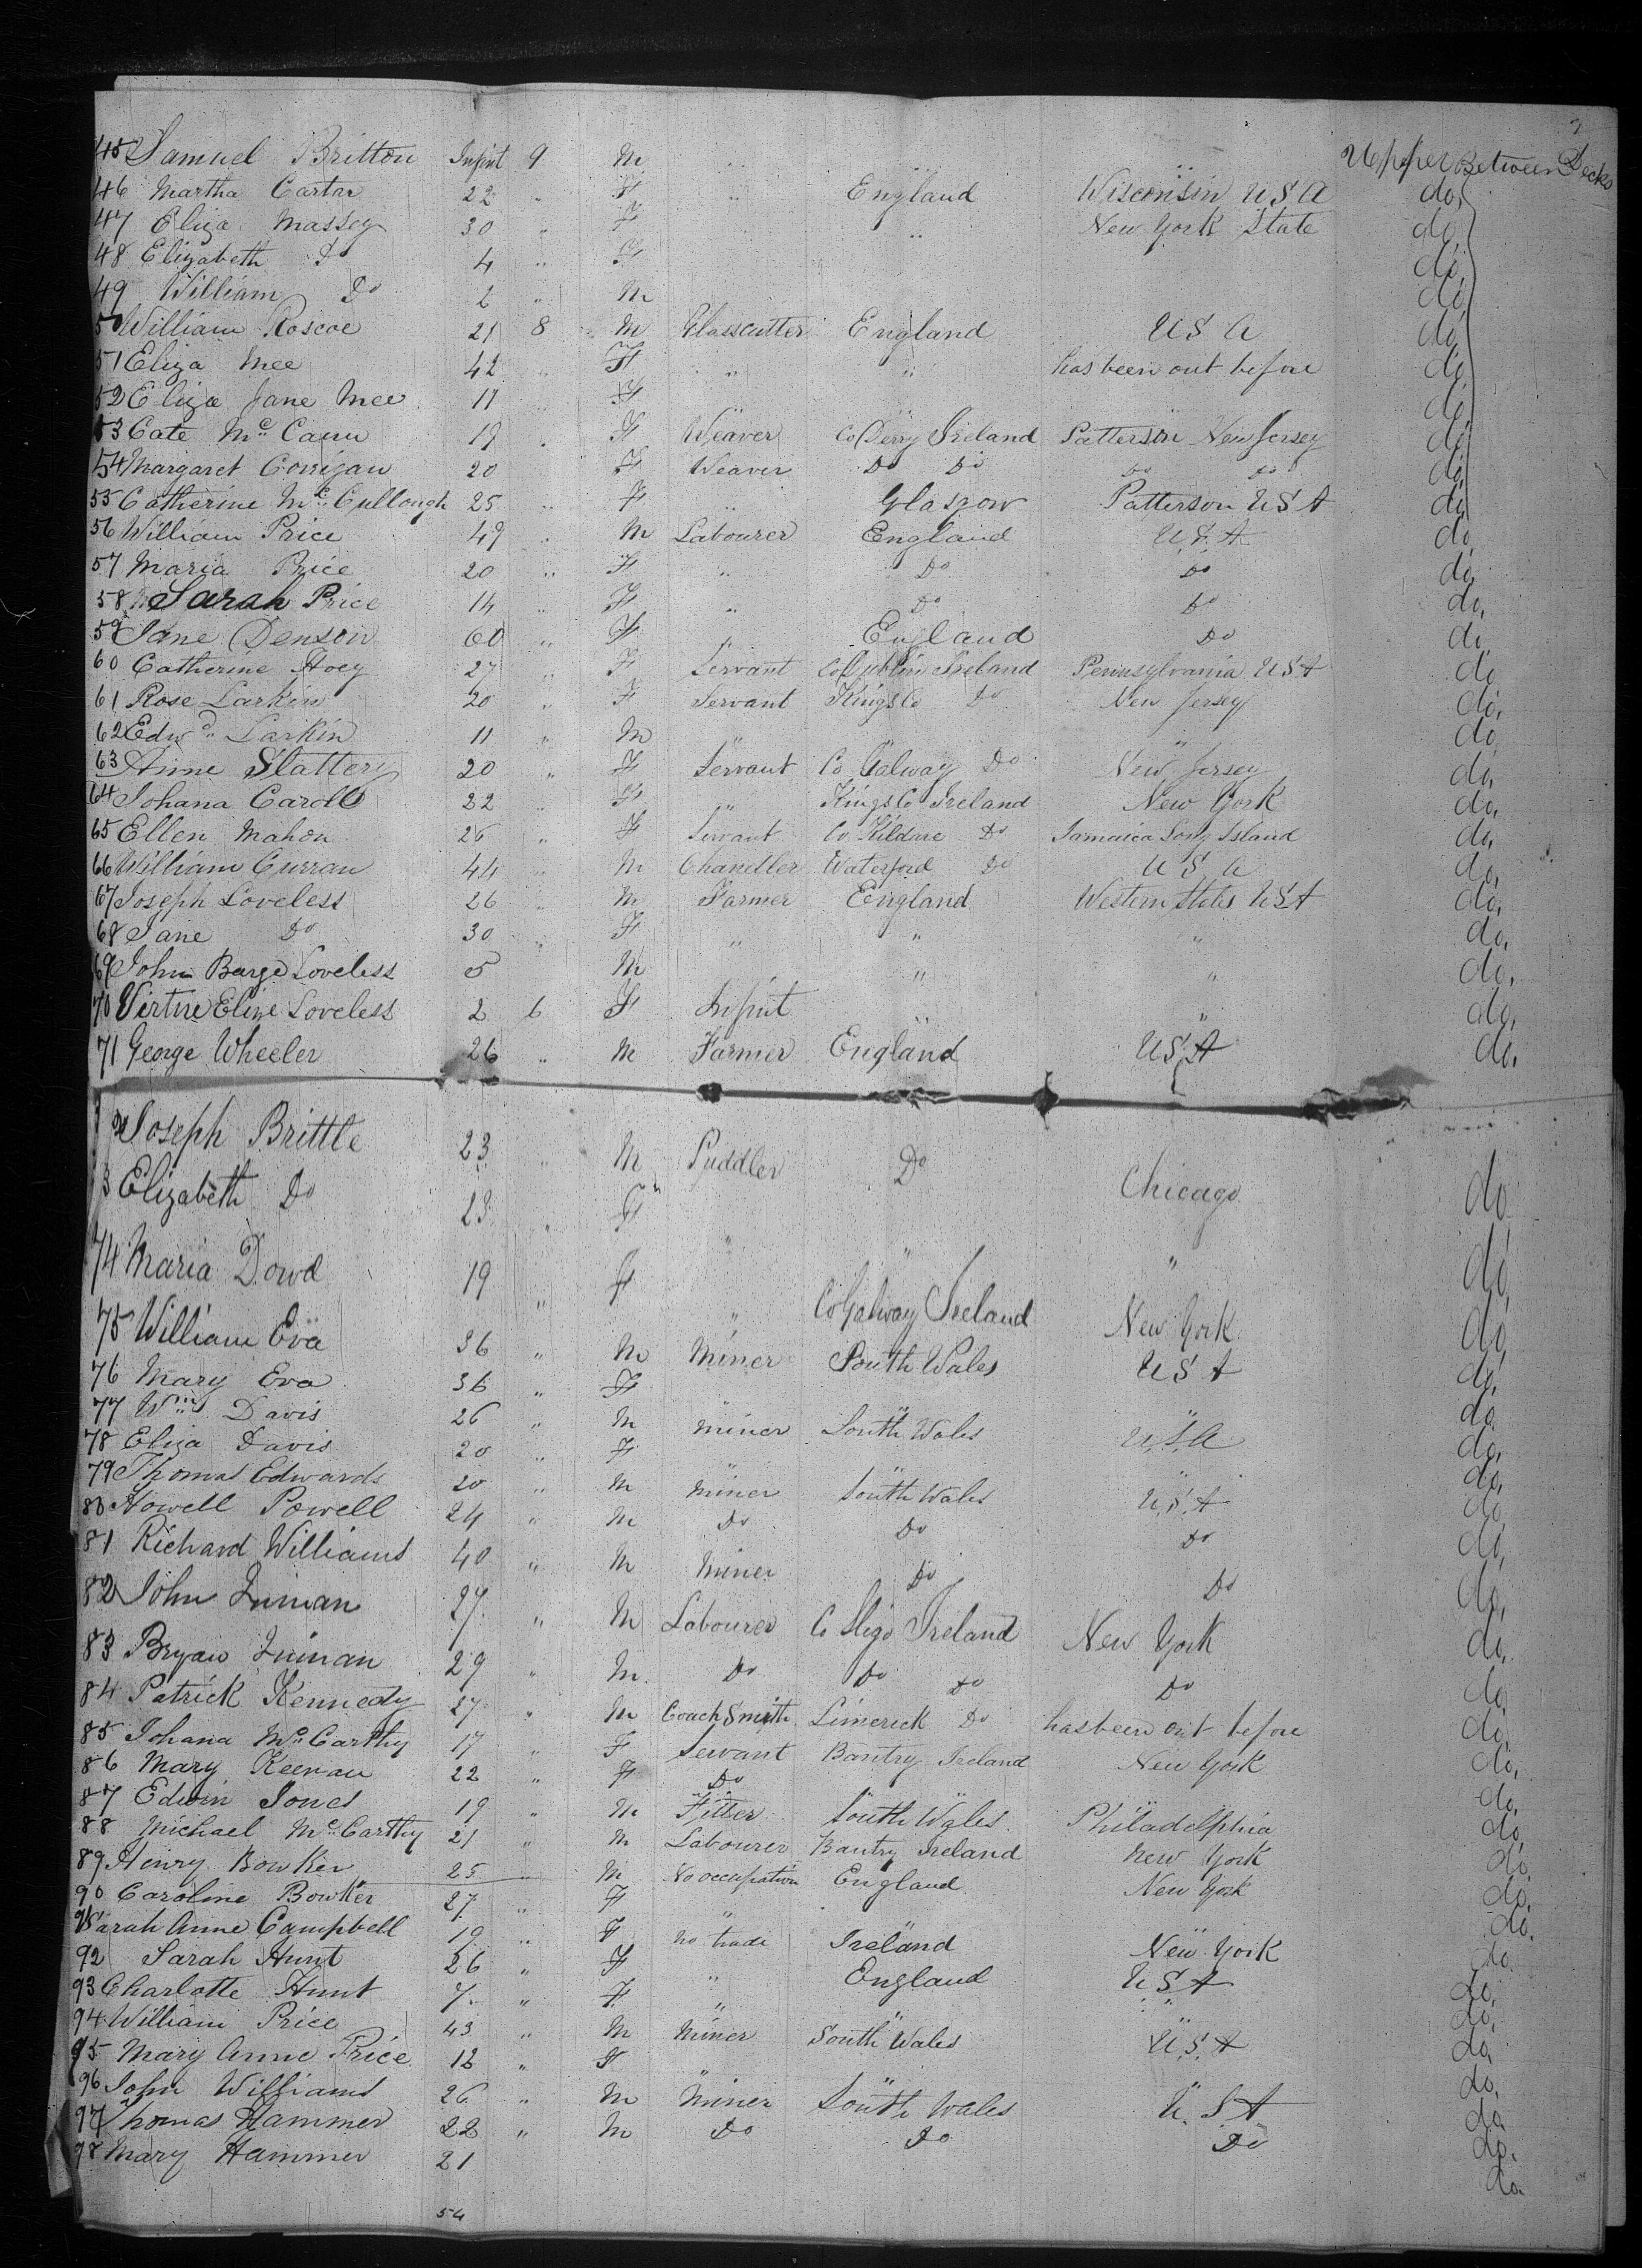 2
45 Samuel Britton Infint 9 M " " " Upper Between Decks
46 Martha Cartar 22 " F " England Wisconsin USA do,
47 Eliza Massey 30 " F " New York State do,
48 Elizabeth Do 4 " F do,
49 William Do 2 " M do,
50 William Roscoe 21 8 M Glasscutter England USA do,
51 Eliza Mee 42 " F " " has been out before do,
52 Eliza Jane Mee 11 " F do,
53 Cate Mc Cann 19 " F Weaver Co Derry Ireland Patterson New Jersey do,
54 Margaret Corrigan 20 F Weaver Do Do Do Do do,
55 Catherine Mc Cullough 25 " F " Glasgow Patterson USA do,
56 William Price 49 " M Labourer England U.S.A do,
57 Maria Price 20 " F " Do Do do,
58 Sarah Price 14 " F " Do Do do,
59 Jane Denson 60 " F " England Do do,
60 Catherine Hoey 27 " F Servant Co Dublin Ireland Pennsylvania USA do
61 Rose Larkin 20 " F Servant Kings Co Do New Jersey do,
62 Edwd Larkin 11 " M " " " do,
63 Anne Slattery 20 " F Servant Co Galway Do New Jersey do,
64 Johana Caroll 22 " F " Kings Co Ireland New York do,
65 Ellen Mahon 26 " F Servant Co Kildare Do Jamaica Long Island do,
66 William Curran 44 " M Chandler Waterford Do USA do,
67 Joseph Loveless 26 " M Farmer England Western States USA do,
68 Jane Do 30 " F " " " do,
69 John Barge Loveless 5 M " " do,
70 Virtue Elize Loveless 2 6 F Infint " " do,
71 George Wheeler 26 " M Farmer England USA do,
72 Joseph Brittle 23 " M Puddler Do Chicago do
73 Elizabeth Do 23 " F " " " do,
74 Maria Dowd 19 " F " Co Galway Ireland New York do,
75 William Eva 36 " M Miner South Wales USA do,
76 Mary Eva 36 " F " " do,
77 Wm Davis 26 " M Miner South Wales U.S.A do,
78 Eliza Davis 20 " F " " " do,
79 Thomas Edwards 20 " M Miner South Wales U.S.A do,
80 Howell Powell 24 " M Do Do Do do,
81 Richard Williams 40 " M Miner Do Do do,
82 John 27 " M Labourer Co Sligo Ireland New York do,
83 Bryan 29 " M Do Do Do Do do,
84 Patrick Kennedy 27 " M Coach Smith Limerick Do has been out before do,
85 Johana Mc Carthy 17 " F Servant Bantry Ireland New York do,
86 Mary Keenan 22 " F Do " " do,
87 Edwin Jones 19 " M Fitter South Wales Philadelphia do,
88 Michael Mc Carthy 21 " M Labourer Bantry Ireland New York do,
89 Henry Bowker 25 " M No occupation England New York do,
90 Caroline Bowker 27 " F " " " do,
91 Sarah Anne Campbell 19 " F no trade Ireland New York do,
92 Sarah Hunt 26 " F " England USA do,
93 Charlotte Hunt 7 " F " " " do,
94 William Price 43 " M Miner South Wales U.S.A do,
95 Mary Anne Price 12 " F " " " do,
96 John Williams 26 " M Miner South Wales U.S.A do,
97 Thomas Hammer 22 " M Do Do Do do,
98 Mary Hammer 21 do
54